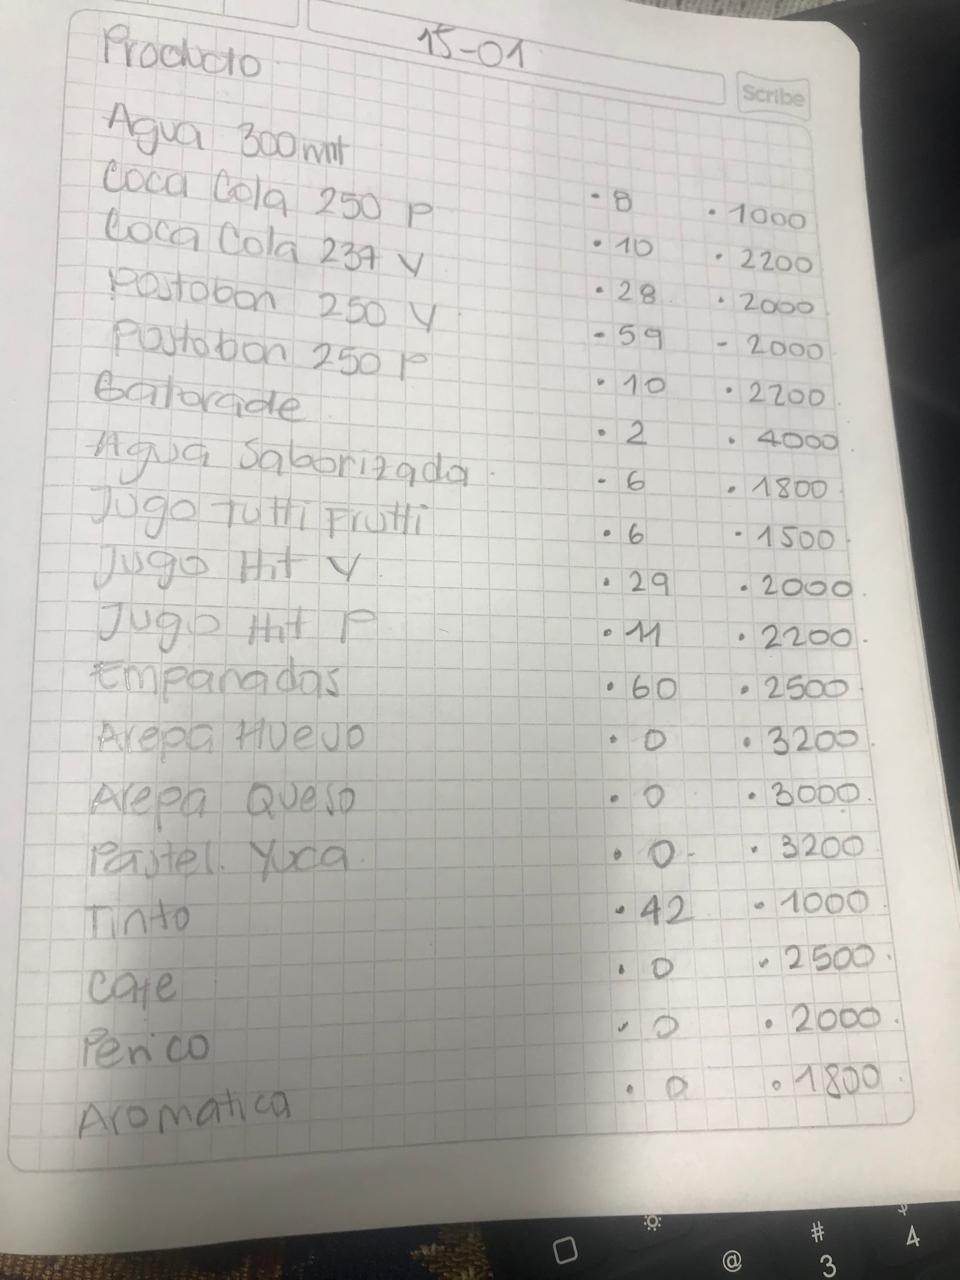 15-01
Producto
Scribe
Agua 300 mlt · 8 · 1000
Coca Cola 250 P · 10 · 2200
Coca Cola 237 V · 28 · 2000
Postobon 250 V - 59 - 2000
Postobon 250 P · 10 · 2200
Gatorade · 2 · 4000
Agua Saborizada · 6 · 1800
Jugo Tutti Frutti · 6 · 1500
Jugo Hit V · 29 · 2000
Jugo Hit P · 11 · 2200
Empanadas · 60 · 2500
Arepa Huevo · 0 · 3200
Arepa Queso · 0 · 3000
Pastel. Yuca · 0 · 3200
Tinto · 42 · 1000
Cafe · 0 · 2500
Perico · 0 · 2000
Aromatica · 0 · 1800
@ # 3 4